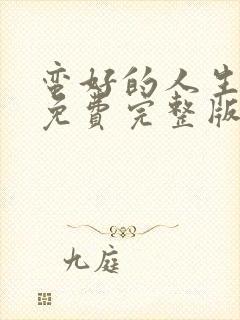 蛮好的人生
免费完整版
九庭